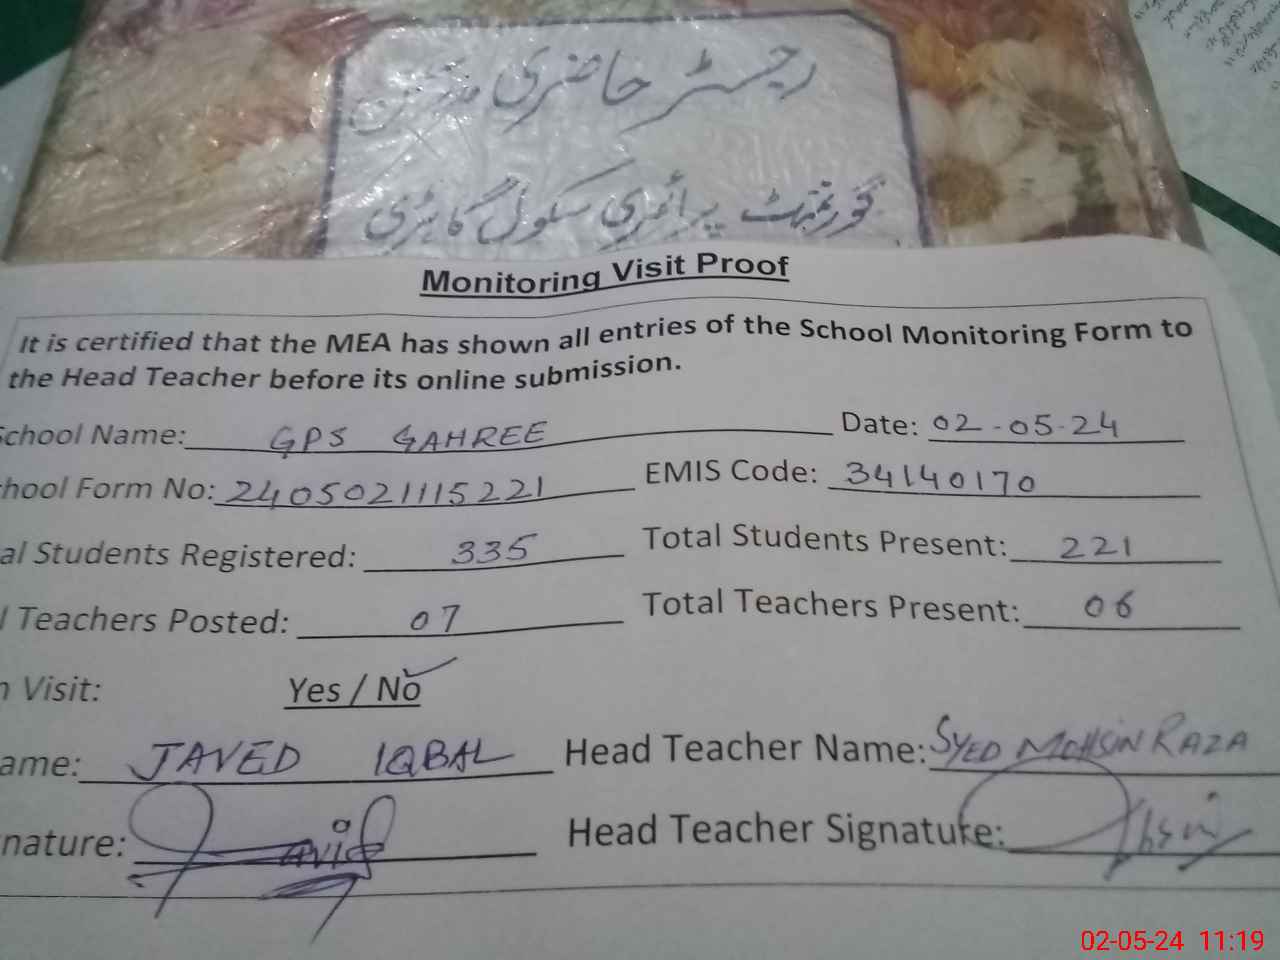 رجسٹر حاضری
گورنمنٹ پرائمری سکول گاہڑی
Monitoring Visit Proof
It is certified that the MEA has shown all entries of the School Monitoring Form to
the Head Teacher before its online submission.
School Name: GPS GAHREE Date: 02-05-24
hool Form No: 2405021115221 EMIS Code: 34140170
al Students Registered: 335 Total Students Present: 221
l Teachers Posted: 07 Total Teachers Present: 06
n Visit: Yes / No
ame: JAVED IQBAL Head Teacher Name: SYED MOHSIN RAZA
nature: Javid Head Teacher Signature:
02-05-24 11:19